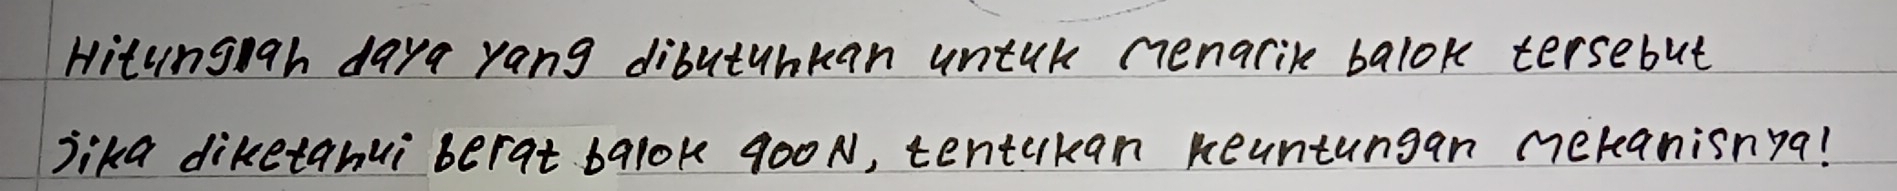 Hitunglah daya yang dibutuhkan untuk menarik balok tersebut
jika diketahui berat balok 900N, tentukan keuntungan mekanisnya!